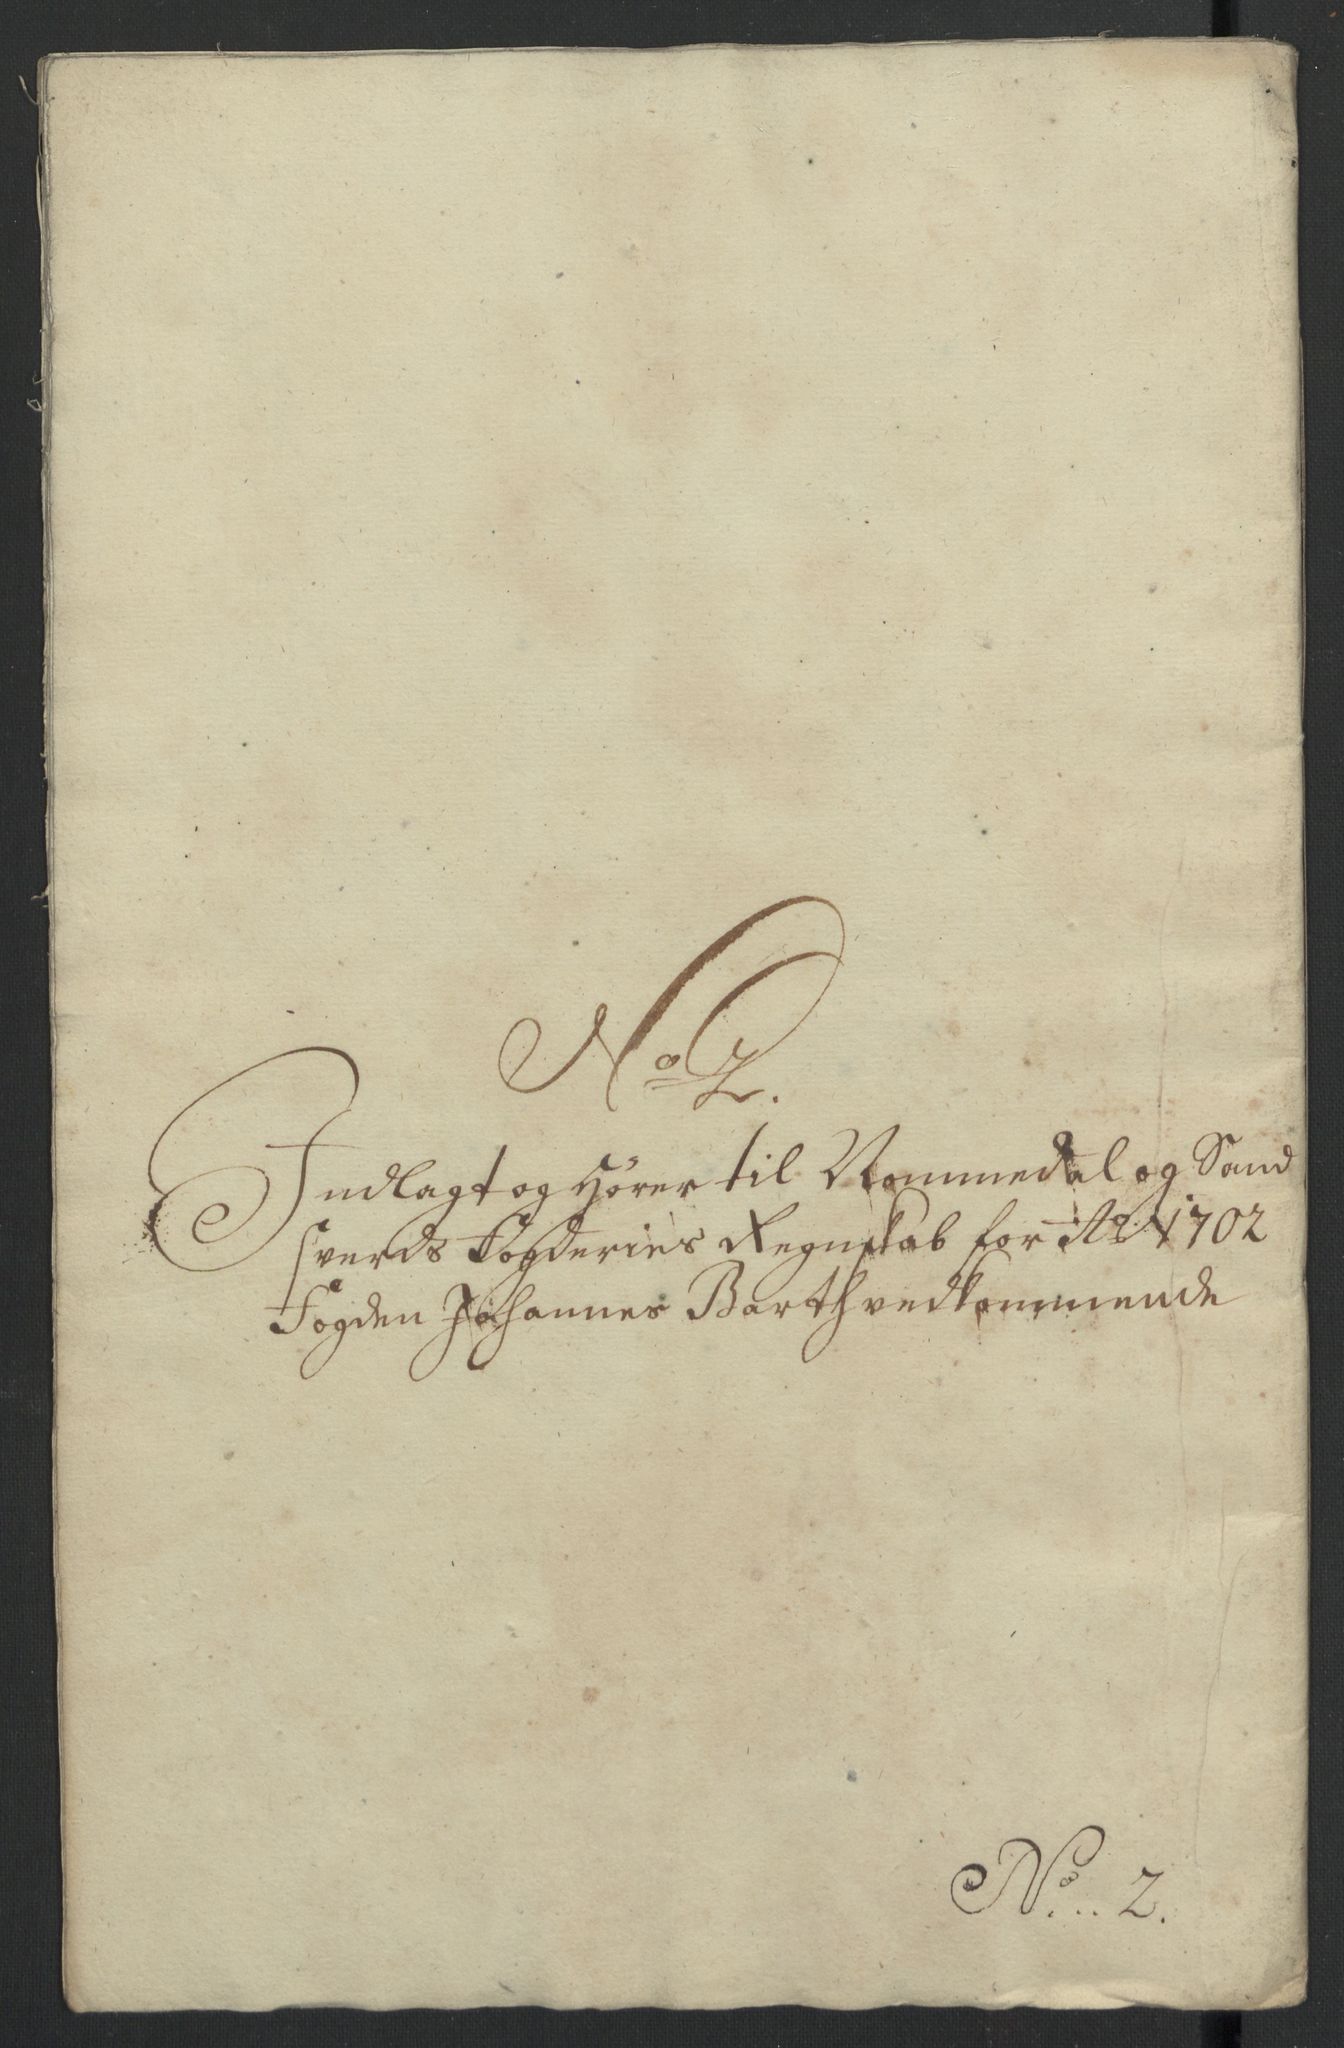 No 2.
Indlagt og Hörer til Nommedal og Sand
sverds Fogderies Regnskab for Ao 1702
Fogden Johannes Barth vedkommende
No... 2.